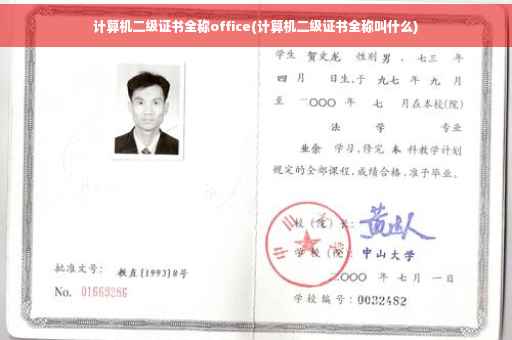 计算机二级证书全称office(计算机二级证书全称叫什么)
学生 贺文龙 性别 男 、七三 年
四 月 日生,于 九七 年 九 月
至 二〇〇〇 年 七 月在本校(院)
法 学 专业
业余 学习,修完 本 科教学计划
规定的全部课程,成绩合格,准予毕业。
校(院)长:
学校(院): 中山大学
二〇〇〇 年 七 月 一 日
批准文号: 教直[1993]8号
No. 01669286
学校编号: 0032482